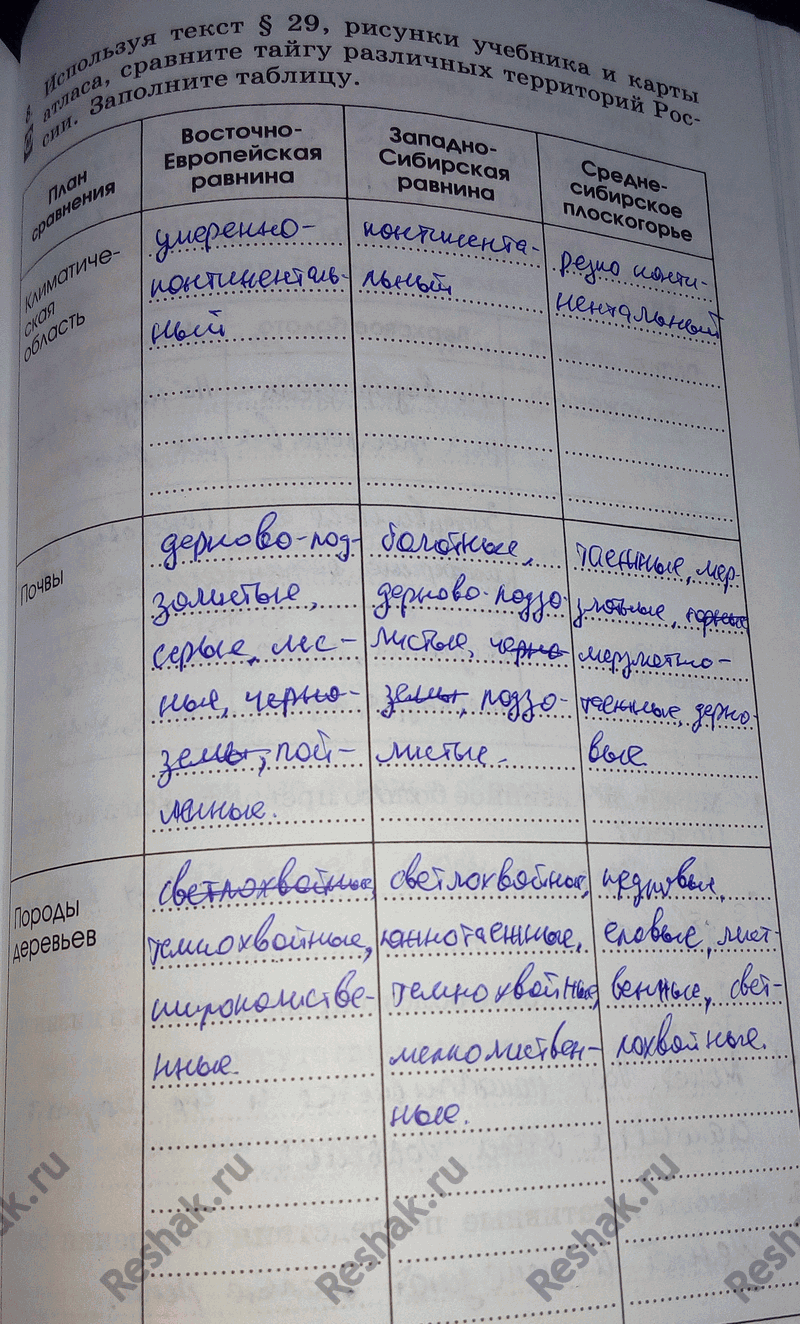 Используя текст § 29, рисунки учебника и карты
атласа, сравните тайгу различных территорий Рос-
сии. Заполните таблицу.
План
сравнения
Восточно-
Европейская
равнина
Западно-
Сибирская
равнина
Средне-
сибирское
плоскогорье
Климатиче-
ская
область
умеренно-
континенталь-
ный
континента-
льный
резко конти-
нентальный
Почвы
дерново-под-
золистые,
серые, лес-
ные, черно-
земы, пой-
менные.
болотные,
дерново-подзо-
листые, черно-
земы, подзо-
листые.
таежные, мер-
злотные, горные
мерзлотно-
таежные, дерно-
вые
Породы
деревьев
светлохвойные,
темнохвойные,
широколистве-
нные.
светлохвойные,
южнотаежные,
темнохвойные,
мелколиствен-
ные.
кедровые,
еловые, лист-
венные, свет-
лохвойные.
Reshak.ru
Reshak.ru
Reshak.ru
Reshak.ru